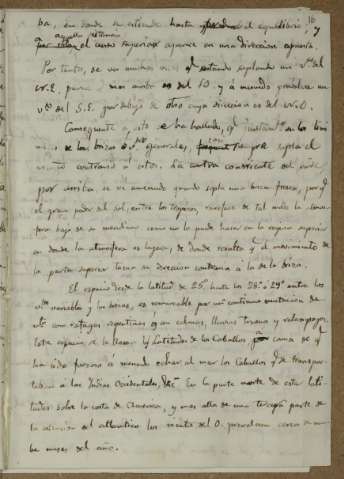 16
ba, en donde se estiende hasta el equilibrio, y
el curso superior aparece en una direccion opuesta.
Por tanto, se ven muchas veces qᵉ estando soplando un vᵗᵒ del
N.E. para y mas arriba es del SO. y á menudo prevalece un
vᵗᵒ del S.E. por debajo de otro cuya direccion es del N.O.
Consiguiente a esto se ha hallado, qᵉ en los
de las brisas ó vᵗᵒˢ generales, siempre sopla el
viento contrario á estos. La otra corriente del aire
por arriba se ve aun cuando sopla una brisa fresca, por qᵉ
el gran poder del sol, entre los trópicos, rarefice de tal
bajo de su meridiano como no lo puede hacer en la region superior
en donde la atmosfera es ligera, de donde resulta qᵉ el movimiento de
la parte superior tiene su direccion contraria á la de la brisa.
El espacio desde la latitud de 25° hasta los 28° ó 29° entre los
vᵗᵒˢ variables y las brisas, es remarcable por una continua mutacion de
vᵗᵒˢ con rafagas repentinas en calmas, lluvias, truenos y relampagos.
Este espacio se le llama la Latitudes de los Caballos, á causa de qᵉ
ha sido forzoso á menudo echar al mar los Caballos qᵉ se transpor-
taban á las Indias Occidentales, &c. En la parte norte de estas lati-
tudes sobre la costa de America, y mas alla de una tercera parte de
la estension del atlantico los vientos del O. prevalecen cerca de nue-
be meses del año.